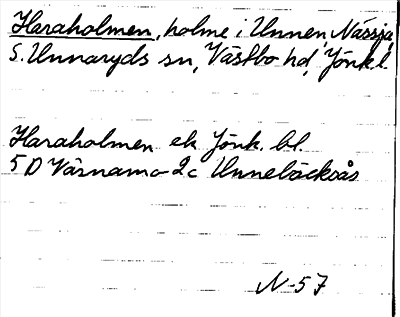 Haraholmen, holme i Unnen, Nässja,
S. Unnaryds sn, Västbo hd, Jönk l.
Haraholmen ek Jönk. bl.
5 D Värnamo 2c Unnebäcksås
N-57